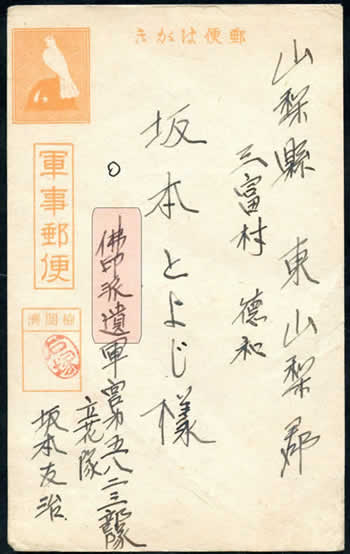 郵便はがき
山梨縣 東山梨郡
三富村 德和
坂本とよじ様
軍事郵便
檢閲濟
戸塚
佛印派遣軍宮第五八二三部隊
立花隊
坂本友治